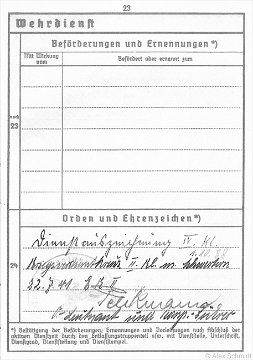 23
Wehrdienst
Beförderungen und Ernennungen*)
Mit Wirkung vom
Befördert oder ernannt zum
noch 23
Orden und Ehrenzeichen*)
Dienstauszeichnung IV. Kl.
Kriegsverdienstkreuz II. Kl. m. Schwertern
24
Leutnant und Komp.-Führer
*) Bestätigung der Beförderungen, Ernennungen und Verleihungen nach Abschluß der
aktiven Dienstzeit durch den
Dienstgrad, Dienststellung und Dienststempel.
© Alex Schmidt